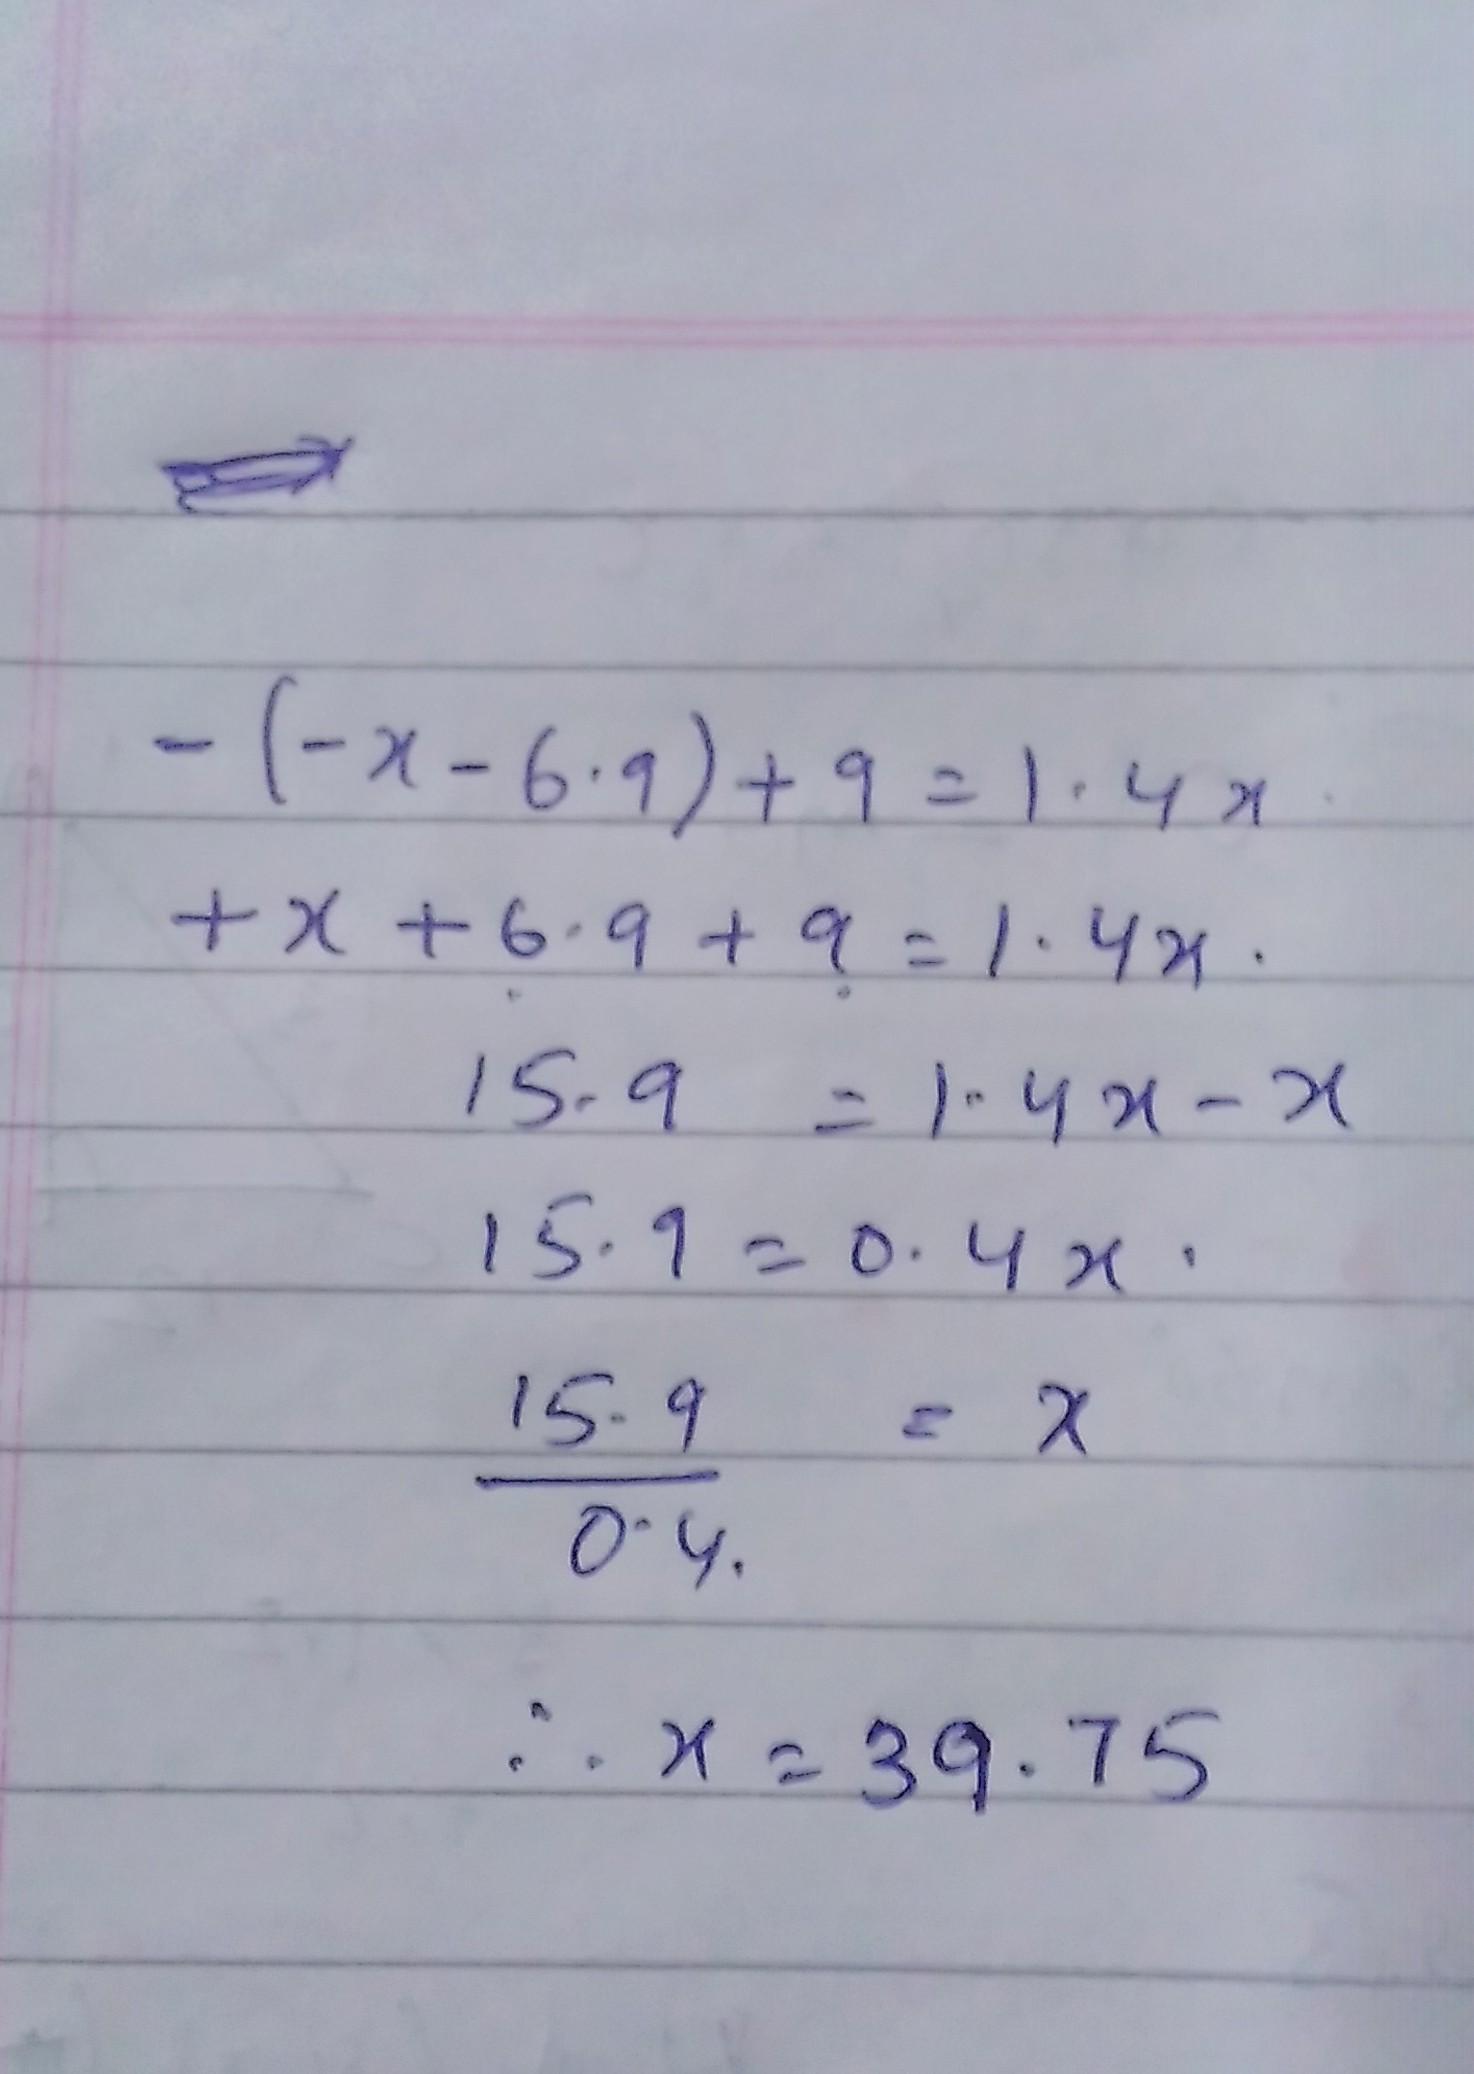 -(-x-6.9)+9=1.4x
+x+6.9+9=1.4x.
15.9=1.4x-x
15.9=0.4x.
15.9/0.4.=x
∴x=39.75